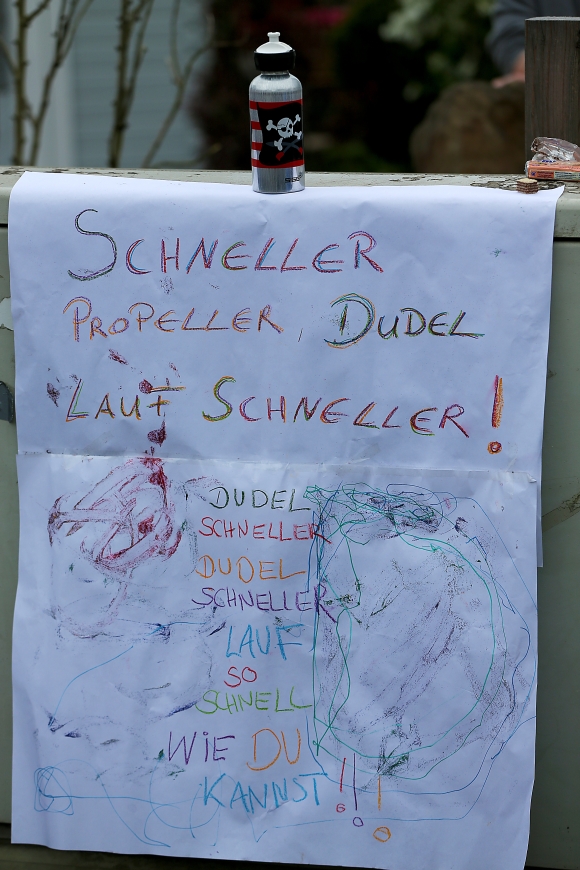 SIGG
SCHNELLER
PROPELLER, DUDEL
LAUF SCHNELLER!
DUDEL
SCHNELLER
DUDEL
SCHNELLER
LAUF
SO
SCHNELL
WIE DU
KANNST!!!